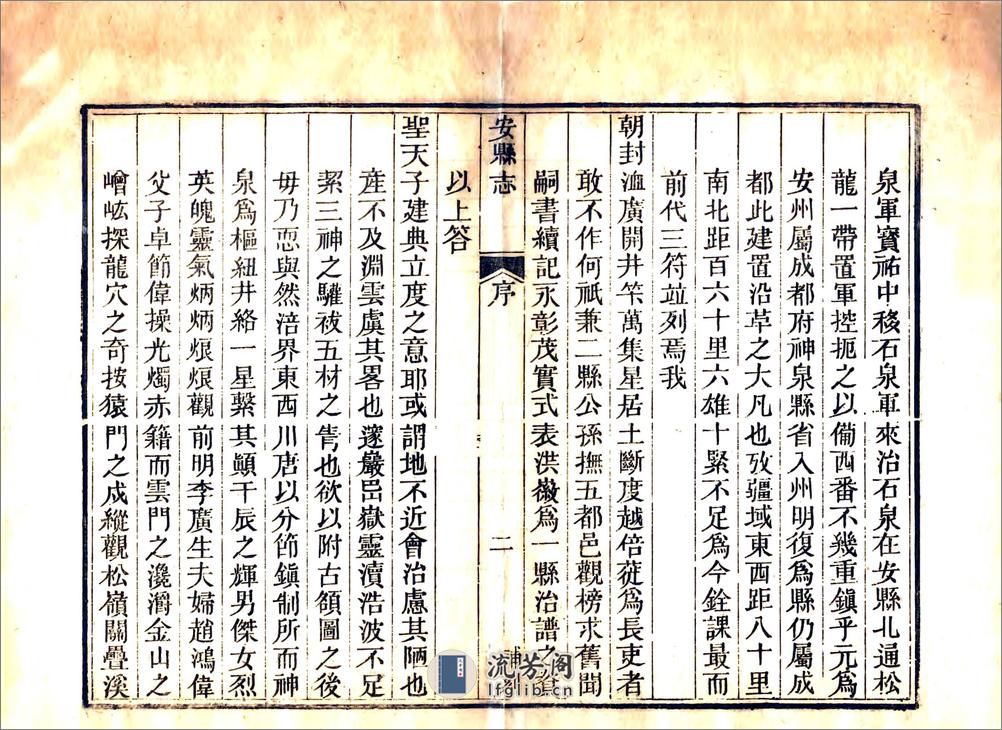 泉軍寳祐中移石泉軍來治石泉在安縣北通松
龍一帶置軍控扼之以備西番不幾重鎭乎元爲
安州屬成都府神泉縣省入州明復爲縣仍屬成
都此建置沿革之大凡也攷疆域東西距八十里
南北距百六十里六雄十緊不足爲今銓課最而
前代三符竝列焉我
朝封洫廣開井竿萬集星居土斷度越倍蓰爲長吏者
敢不作何祇兼二縣公孫撫五都邑觀榜求舊聞
嗣書續記永彰茂實式表洪徽爲一縣治譜之
安縣志
序
二
補刻
以上答
聖天子建典立度之意耶或謂地不近會治慮其陋也
産不及淵雲虞其畧也邃巖岊嶽靈瀆浩波不足
絜三神之驩祓五材之眚也欲以附古頟圖之後
毋乃恧與然涪界東西川唐以分節鎭制所而神
泉爲樞紐井絡一星繫其顚干辰之輝男傑女烈
英魄靈氣炳炳烺烺觀前明李廣生夫婦趙鴻偉
父子卓節偉操光燭赤籍而雲門之瀺灂金山之
嶒岭探龍穴之奇按猿門之成縱觀松嶺關疊溪
流芳阁
lfglib.cn